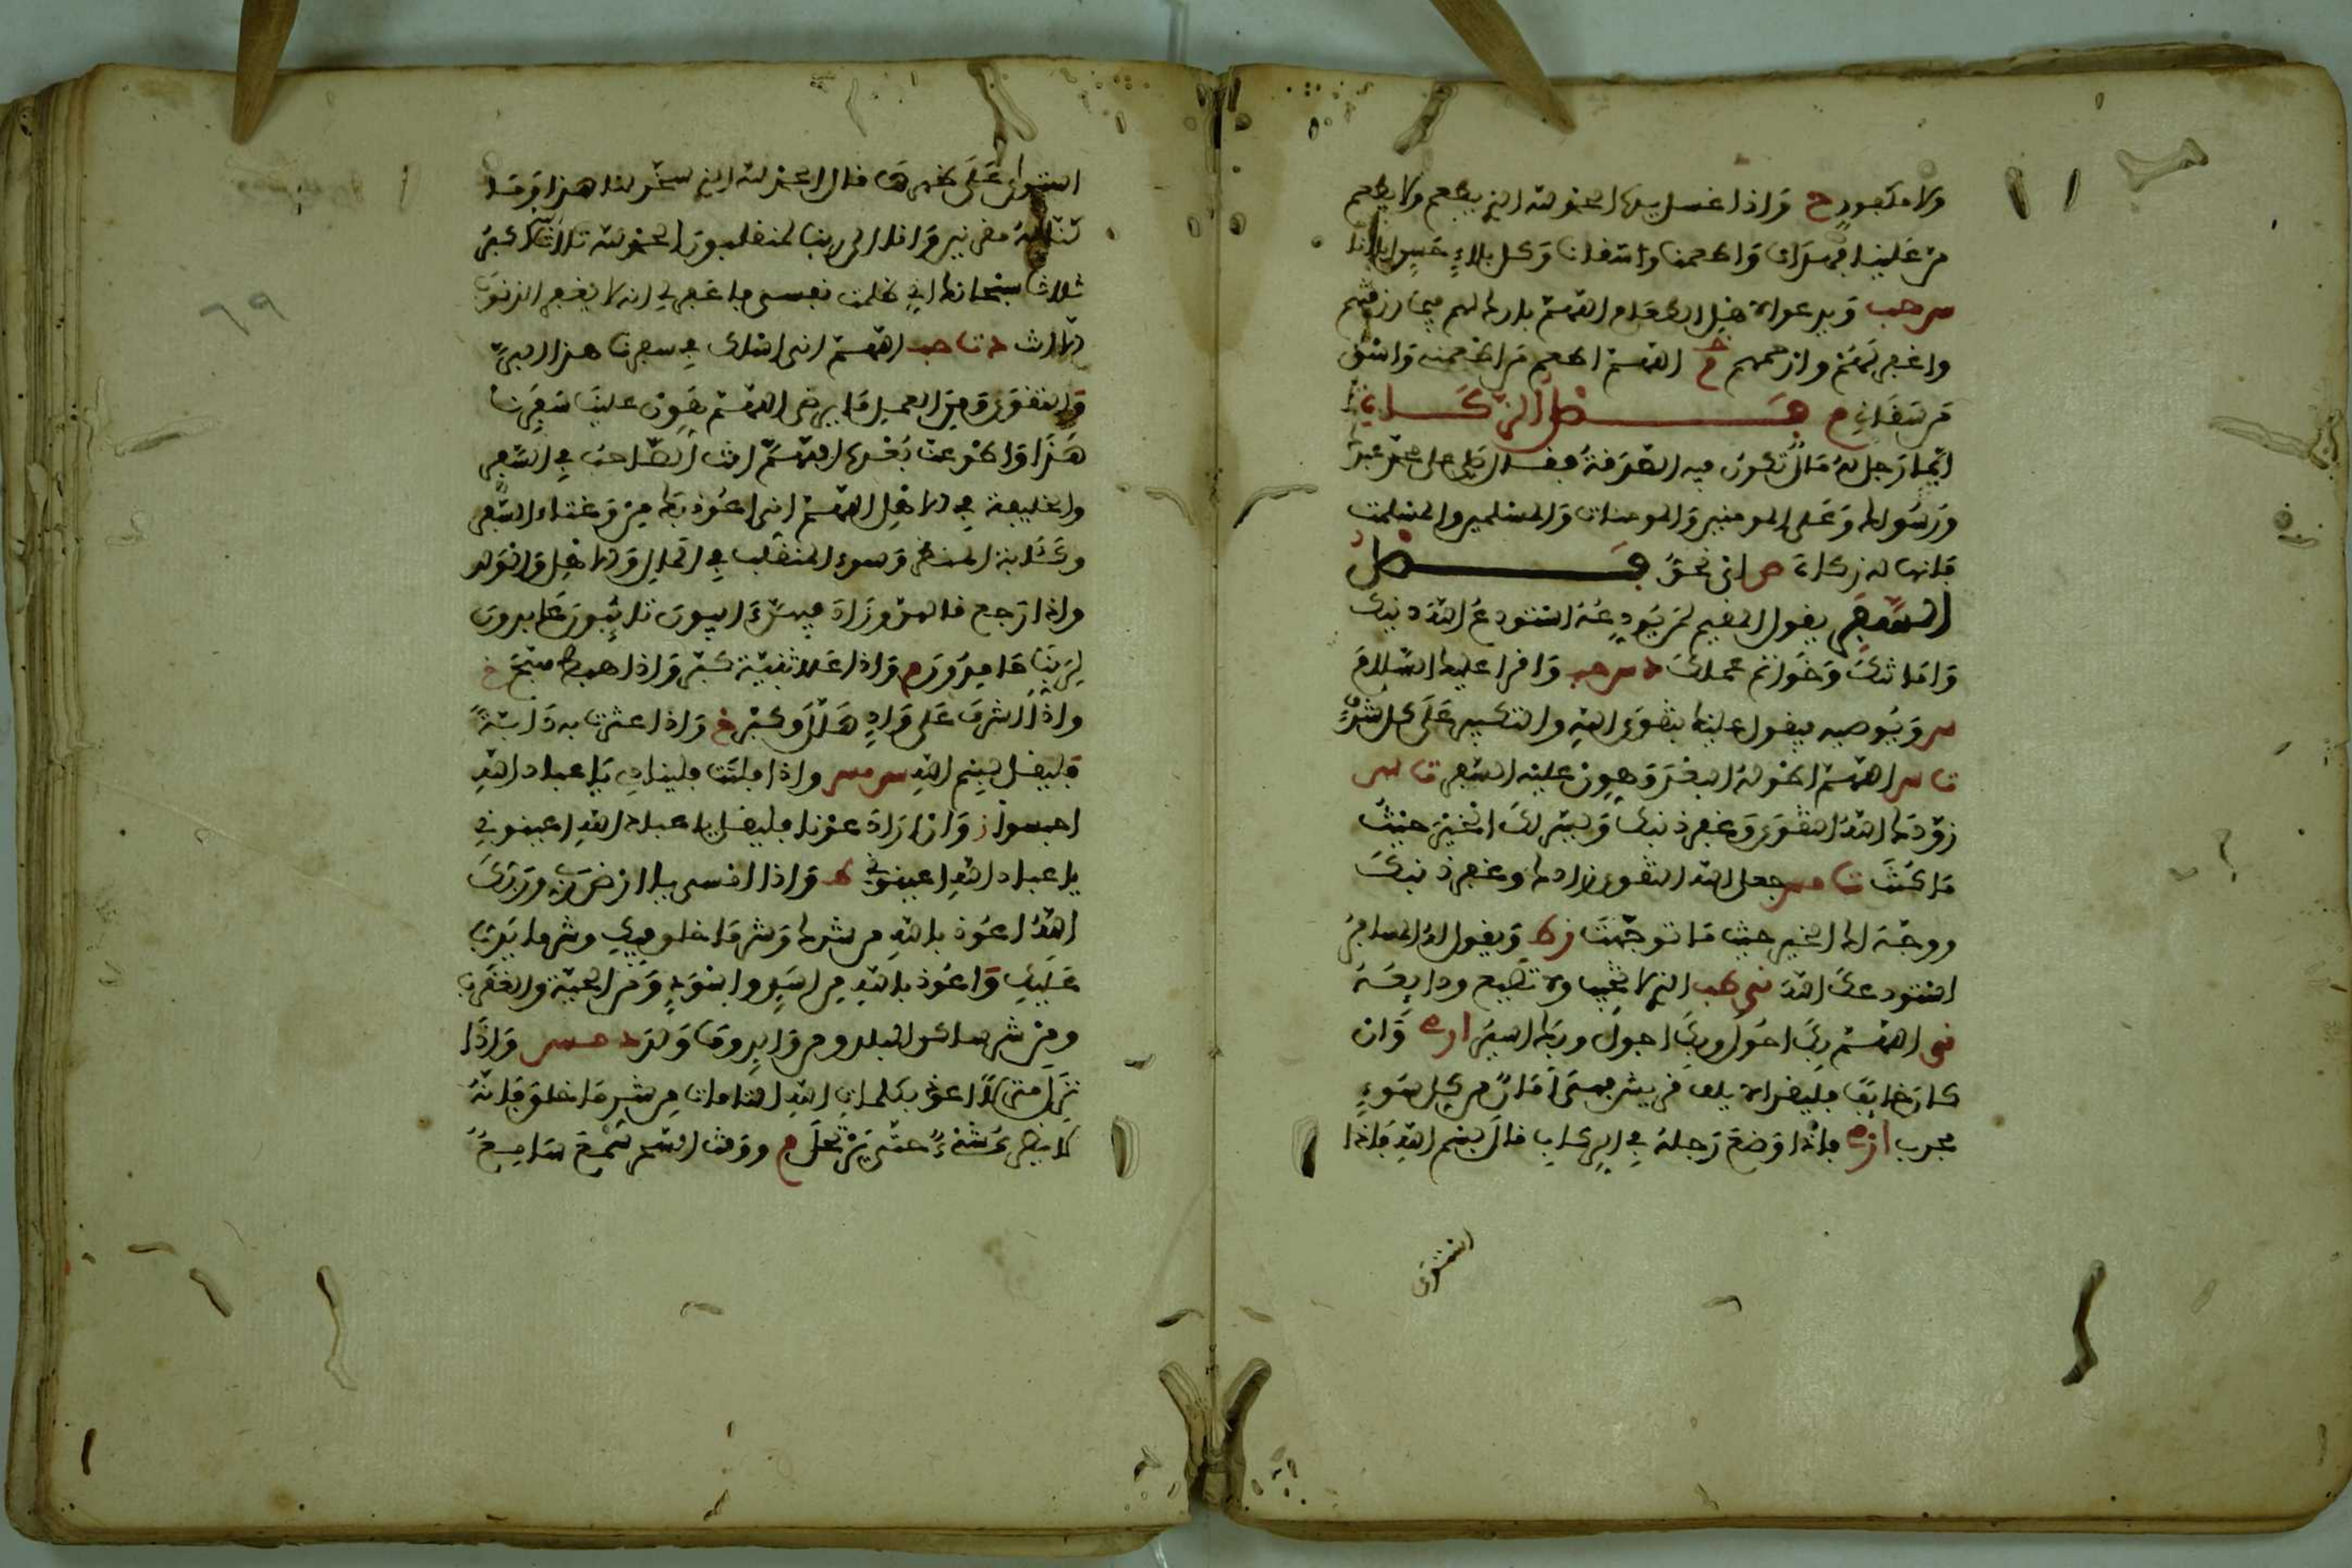 ولا مكفور ح وإذا غسل يديه الحمد لله الذي يطعم ولا يطعم
من علينا فهدانا وأطعمنا وأسقانا وكل بلاء حسن أبلانا
س حب ويدعو لأهل الطعام اللهم بارك لهم فيما رزقتهم
واغفر لهم وارحمهم م اللهم أطعم من أطعمني واسق
من سقاني م فصل الزكاة
أيما رجل له مال تكون فيه الصدقة فقال اللهم صل على محمد عبدك
ورسولك وعلى المومنين والمومنات والمسلمين والمسلمت
فإنها له زكاة ص فصل
السفر يقول المقيم لمن يودعه أستودع الله دينك
وأمانتك وخواتم عملك د س حب واقرأ عليك السلام
س ويوصيه فيقول عليك بتقوى الله والتكبير على كل شرف
ت س اللهم اطو له البعد وهون عليه السفر ت س
زودك الله التقوى وغفر ذنبك ويسر لك الخير حيث
ما كنت ت مس جعل الله التقوى زادك وغفر ذنبك
ووجه لك الخير حيث ما توجهت ويقول له المسافر
أستودعك الله الذي لا تخيب ولا تضيع ودايعه
اللهم بك أصول وبك أجول وبك أسير وإن
كان خايفا فليقرأ لإيلاف قريش فهي أمان من كل سوء
مجرب فإذا وضع رجله في الركاب قال بسم الله فإذا
استوى
استوى على ظهرها قال الحمد لله الذي سخر لنا هذا وما
كنا له مقرنين وإنا إلى ربنا لمنقلبون الحمد لله ثلاثا الله أكبر
ثلاثا سبحانك إني ظلمت نفسي فاغفر لي إنه لا يغفر الذنوب
إلا أنت د ت حب اللهم إني أسئلك في سفرنا هذا البر
والتقوى ومن العمل ما ترضى اللهم هون علينا سفرنا
هذا واطو عنا بعده اللهم أنت الصاحب في السفر
والخليفة في الأهل اللهم إني أعوذ بك من وعثاء السفر
وكئابة المنظر وسوء المنقلب في المال والأهل والولد
وإذا رجع قالهن وزاد فيهن آيبون تائبون عابدون
لربنا حامدون م وإذا علا ثنية كبر وإذا هبط سبح خ
وإذا أشرف على واد هلل وكبر خ وإذا عثرت به دابته
فليقل بسم الله س مس وإذا انفلتت فليناد يا عباد الله
احبسوا ز وإن أراد عونا فليقل يا عباد الله أعينوني
يا عباد الله أعينوني ط وإذا أمسى يا أرض ربي وربك
الله أعوذ بالله من شرك وشر ما خلق فيك وشر ما يدب
عليك وأعوذ بالله من أسد وأسود ومن الحية والعقرب
ومن شر ساكن البلد ومن والد وما ولد د س مس وإذا
نزل منزلا أعوذ بكلمات الله التامات من شر ما خلق فإنه
لا يضره شيء حتى يرتحل م ووقت السحر سمع سامع
٦٩